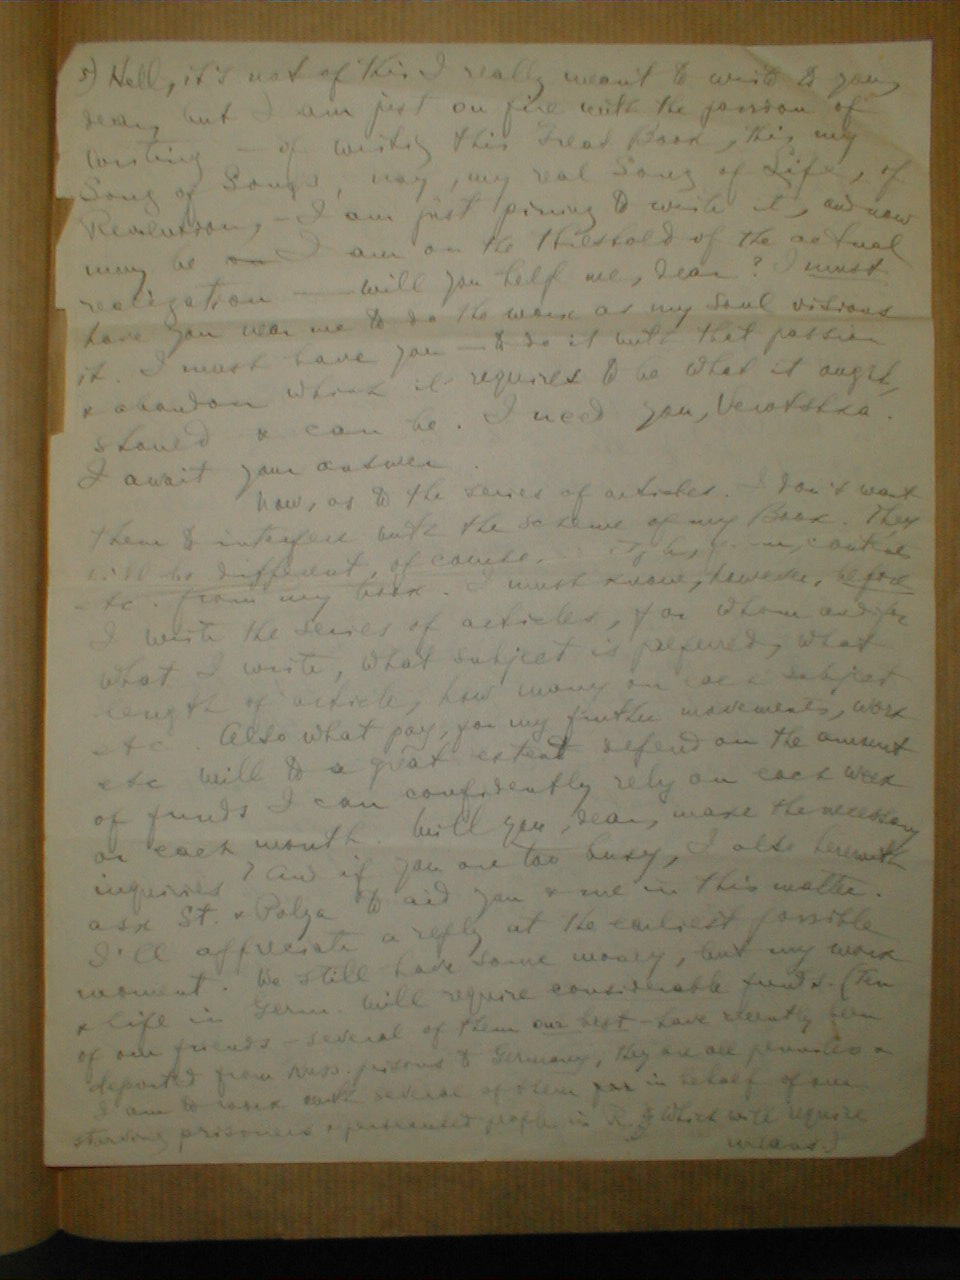 5) Hell, it's not of this I really meant to write to you,
dear, but I am just on fire with the passion of
writing — of writing this Great Book, this my
Song of Songs, nay, my real Song of Life, of
Revolution, — I am just pining to write it, and now
may be I am on the threshold of the actual
realization — will you help me, dear? I must
have you near me to do the work as my soul visions
it. I must have you — to do it with that passion
& abandon which it requires to be what it ought,
should & can be. I need you, Verotshka.
I await your answer.
Now, as to the series of articles. I don't want
them to interfere with the scheme of my Book. They
will be different, of course, in contents
etc. from my book. I must know, however, before
I write the series of articles, for whom
what I write, what subject is preferred, what
length of article, how many on each subject
etc. Also what pay, for my further movements, work
etc will to a great extent depend on the amount
of funds I can confidently rely on each week
or each month. Will you, dear, make the necessary
inquiries? And if you are too busy, I also herewith
ask St. & Polya to aid you & me in this matter.
I'll appreciate a reply at the earliest possible
moment. We still have some money, but my work
& life in Germ. will require considerable funds. (Ten
of our friends — several of them our best — have recently been
deported from Russ. prisons to Germany, they are all penniless &
I am to work with several of them in behalf of our
starving prisoners & persecuted people in R. Which will require
means.)